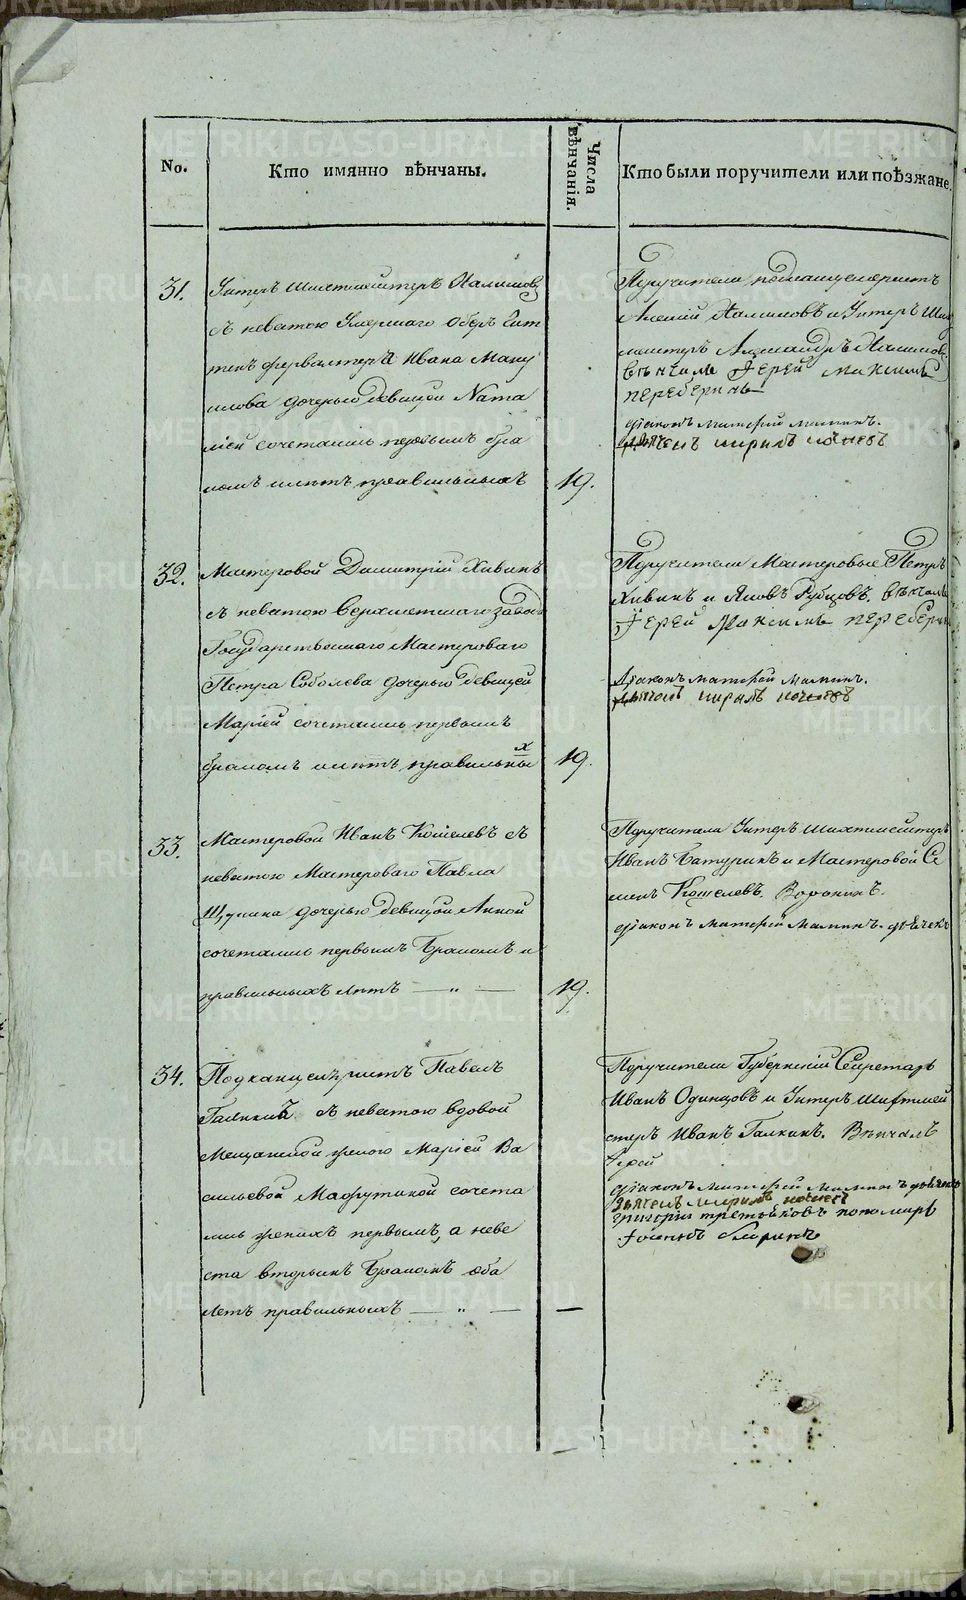 No.
Кто имянно вѣнчаны.
Числа вѣнчанія.
Кто были поручители или поѣзжане.
31.
Унтеръ Шихтмейстеръ
съ невѣтою Умершаго Оберъ
Ивана
дочерью девицей Ната
ліей сочетались первымъ бра
комъ и лѣтъ правильныхъ
19.
Поручители
Алексій и Унтеръ Ших
мейстеръ Александръ
вѣнчалъ Іерей Максимъ
переберинъ
діаконъ Матфей Маминъ.
32.
Мастеровой Димитрій Хивинъ
съ невѣтою Верхисетскаго завода
Государственнаго Мастероваго
Петра Соболева дочерью девицей
Маріей сочетались первымъ
бракомъ и лѣтъ правильны
х
19.
Поручители Мастеровые Петръ
Хивинъ и Яковъ Рубцовъ. вѣнчалъ
Іерей Максимъ переберин
Діаконъ Матфей Маминъ.
33.
Мастеровой Иванъ Кошелевъ съ
невѣтою Мастероваго Павла
дочерью девицей Анной
сочетались первымъ Бракомъ и
правильныхъ лѣтъ — „ —
19.
Поручители Унтеръ Шихтмейстеръ
Иванъ Батуринъ и Мастеровой Се
менъ Кошелевъ.
діаконъ Матфей Маминъ. дьячекъ
34.
Подканцеляристъ Павелъ
Галкинъ съ невѣтою вдовой
Мещанской женою Маріей Ва
сильевой сочета
лись женихъ первымъ, а неве
ста вторымъ Бракомъ оба
летъ правильныхъ — „ —
—
Поручители Губернскій Секретарь
Иванъ Одинцовъ и Унтеръ Шихтмей
стеръ Иванъ Галкинъ. Вѣнчалъ
Іерей
діаконъ Матфей Маминъ дьячекъ
григорій третьяковъ пономарь
METRIKI.GASO-URAL.RU